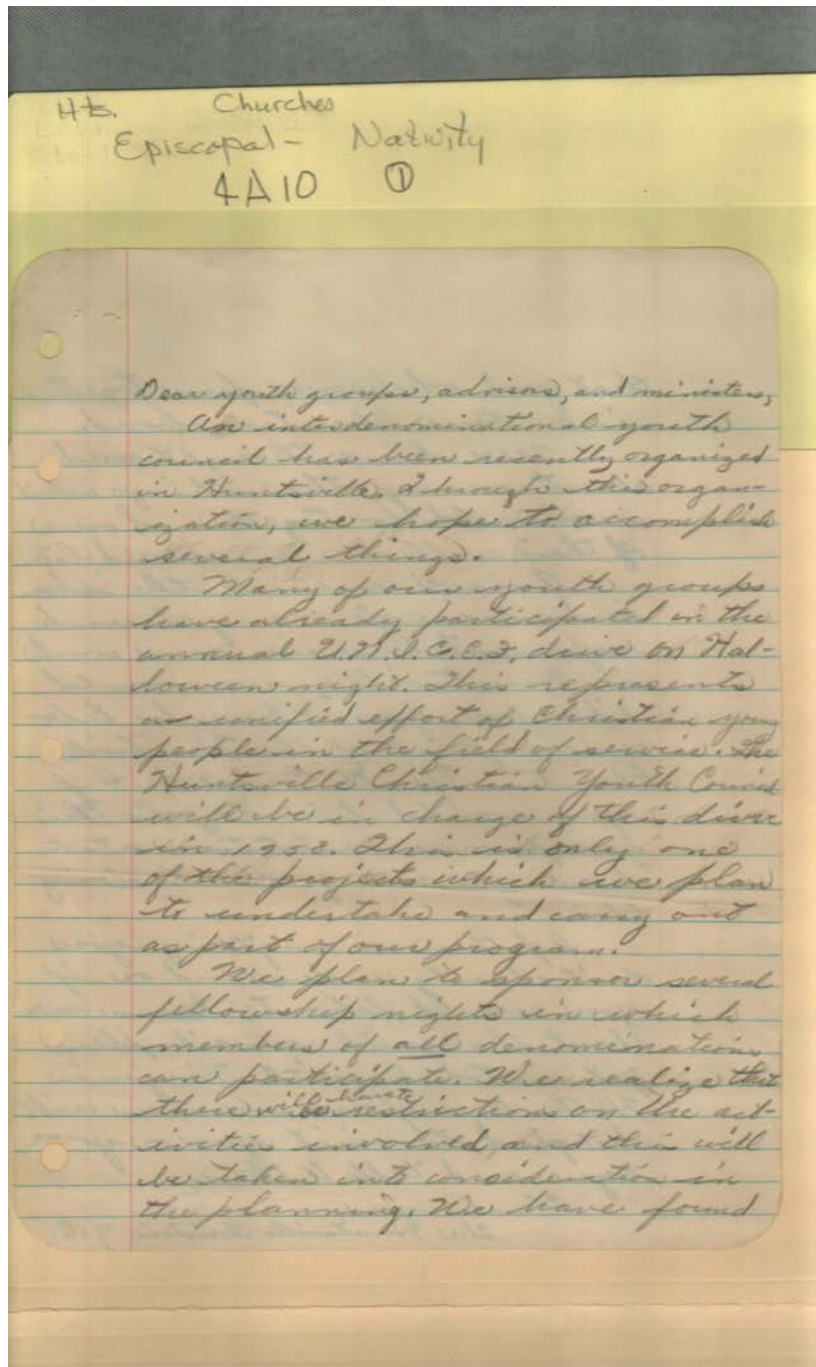 Hts. Churches
Episcopal - Nativity
4A10 ①
Dear youth groups, advisors, and ministers,
An interdenominational youth
council has been recently organized
in Huntsville. Through this organ-
ization, we hope to accomplish
several things.
Many of our youth groups
have already participated in the
annual U.N.I.C.E.F. drive on Hal-
loween night. This represents
a unified effort of Christian young
people in the field of service. The
Huntsville Christian Youth Council
will be in charge of this drive
in 1958. This is only one
of the projects which we plan
to undertake and carry out
as part of our program.
We plan to sponsor several
fellowship nights in which
members of all denominations
can participate. We realize that
there will have to be restrictions on the act-
ivities involved, and this will
be taken into consideration in
the planning. We have found